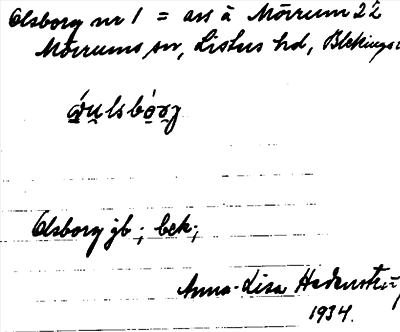 Olsborg nr 1 = avs å Mörrum 22
Mörrums sn, Listers hd, Blekinge
Olsborg jb; bek;
Anna-Lisa
1934.